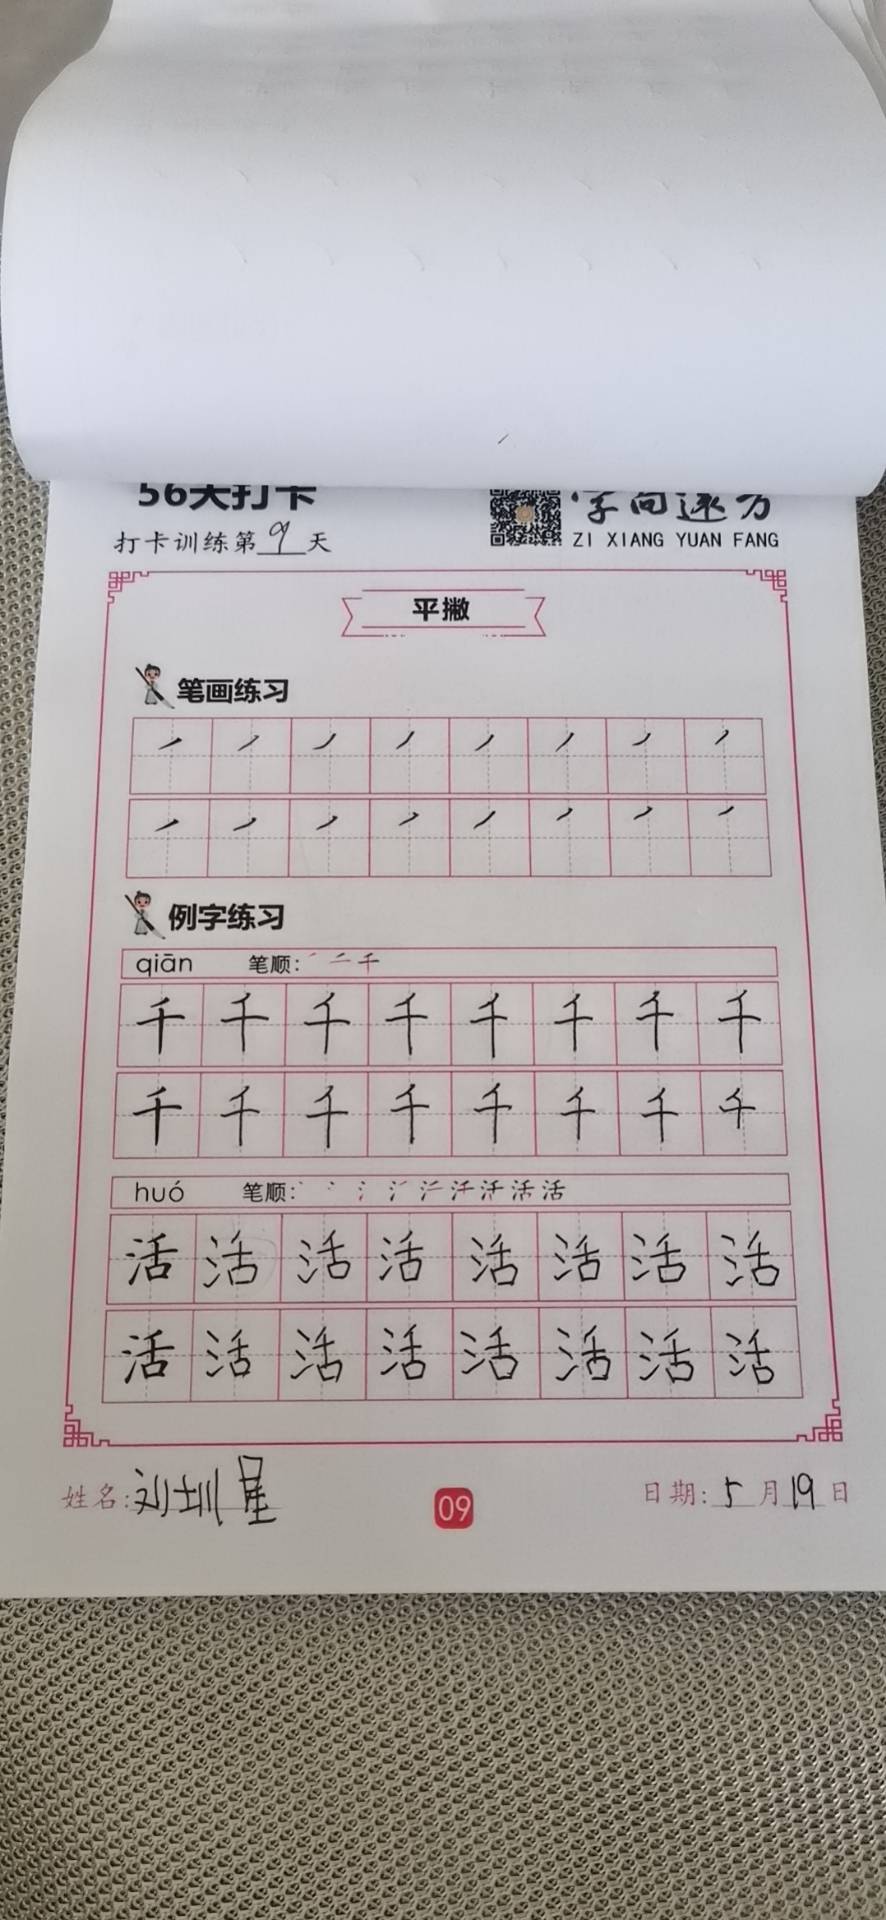 56天打卡
字向远方
打卡训练第9天
ZI XIANG YUAN FANG
平撇
笔画练习
例字练习
qiān 笔顺:
千 千 千 千 千 千 千 千
千 千 千 千 千 千 千 千
huó 笔顺:
活 活 活 活 活 活 活 活
活 活 活 活 活 活 活 活
姓名:刘圳星
09
日期:5月19日